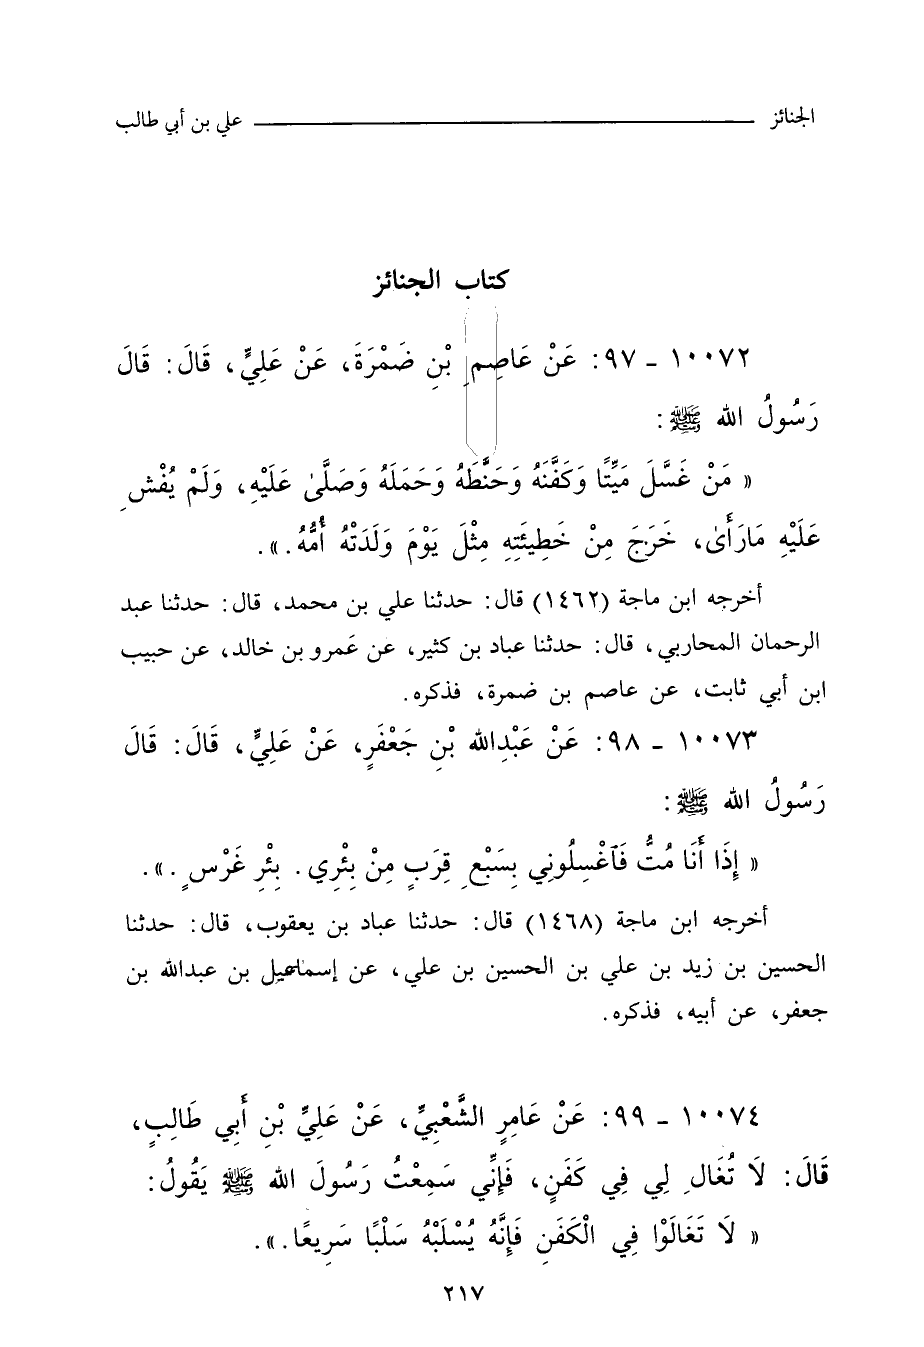 الجنائز ــــــــــ علي بن أبي طالب
كتاب الجنائز
١٠٠٧٢ - ٩٧: عَنْ عَاصِمِ بْنِ ضَمْرَةَ، عَنْ عَلِيٍّ، قَالَ: قَالَ
رَسُولُ الله ﷺ:
« مَنْ غَسَّلَ مَيِّتًا وَكَفَّنَهُ وَحَنَّطَهُ وَحَمَلَهُ وَصَلَّىٰ عَلَيْهِ، وَلَمْ يُفْشِ
عَلَيْهِ مَارَأَىٰ، خَرَجَ مِنْ خَطِيئَتِهِ مِثْلَ يَوْمَ وَلَدَتْهُ أُمُّهُ.».
أخرجه ابن ماجة (١٤٦٢) قال: حدثنا علي بن محمد، قال: حدثنا عبد
الرحمان المحاربي، قال: حدثنا عباد بن كثير، عن عَمرو بن خالد، عن حبيب
ابن أبي ثابت، عن عاصم بن ضمرة، فذكره.
١٠٠٧٣ - ٩٨: عَنْ عَبْدِالله بْنِ جَعْفَرٍ، عَنْ عَلِيٍّ، قَالَ: قَالَ
رَسُولُ الله ﷺ:
« إِذَا أَنَا مُتُّ فَٱغْسِلُونِي بِسَبْعِ قِرَبٍ مِنْ بِئْرِي. بِئْرِ غَرْسٍ.».
أخرجه ابن ماجة (١٤٦٨) قال: حدثنا عباد بن يعقوب، قال: حدثنا
الحسين بن زيد بن علي بن الحسين بن علي، عن إسماعيل بن عبدالله بن
جعفر، عن أبيه، فذكره.
١٠٠٧٤ - ٩٩: عَنْ عَامِرٍ الشَّعْبِيِّ، عَنْ عَلِيِّ بْنِ أَبِي طَالِبٍ،
قَالَ: لَا تُغَالِ لِي فِي كَفَنٍ، فَإِنِّي سَمِعْتُ رَسُولَ الله ﷺ يَقُولُ:
« لَا تَغَالَوْا فِي الْكَفَنِ فَإِنَّهُ يُسْلَبُهُ سَلْبًا سَرِيعًا.».
٢١٧